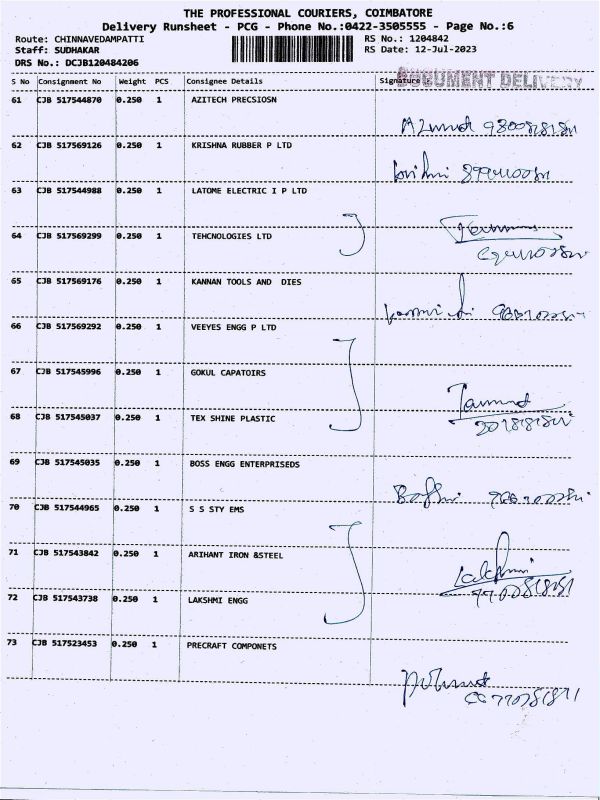 THE PROFESSIONAL COURIERS, COIMBATORE
Delivery Runsheet - PCG - Phone No.:0422-3505555 - Page No.:6
Route: CHINNAVEDAMPATTI RS No.: 1204842
Staff: SUDHAKAR RS Date: 12-Jul-2023
DRS No.: DCJB120484206
S No Consignment No Weight PCS Consignee Details Signature
DOCUMENT DELIVERY
61 CJB 517544870 0.250 1 AZITECH PRECSIOSN
62 CJB 517569126 0.250 1 KRISHNA RUBBER P LTD
63 CJB 517544988 0.250 1 LATOME ELECTRIC I P LTD
64 CJB 517569299 0.250 1 TEHCNOLOGIES LTD
65 CJB 517569176 0.250 1 KANNAN TOOLS AND DIES
66 CJB 517569292 0.250 1 VEEYES ENGG P LTD
67 CJB 517545996 0.250 1 GOKUL CAPATOIRS
68 CJB 517545037 0.250 1 TEX SHINE PLASTIC
69 CJB 517545035 0.250 1 BOSS ENGG ENTERPRISEDS
70 CJB 517544965 0.250 1 S S STY EMS
71 CJB 517543842 0.250 1 ARIHANT IRON &STEEL
Lakshmi
72 CJB 517543738 0.250 1 LAKSHMI ENGG
73 CJB 517523453 0.250 1 PRECRAFT COMPONETS